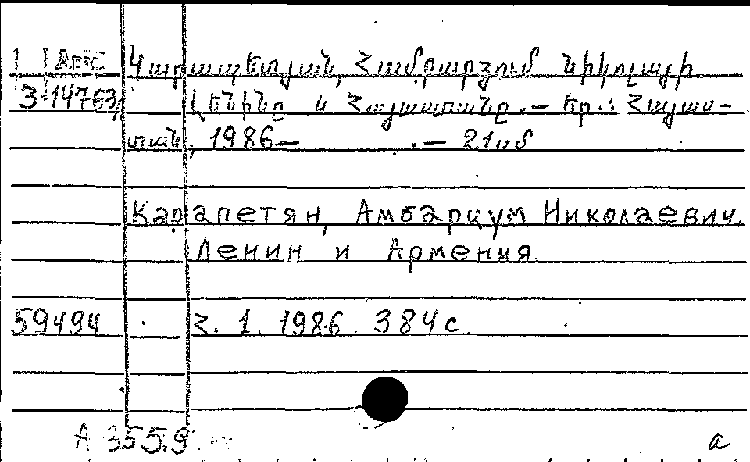 Կարապետյան, Համբարձում Նիկոլայի
3-14763 Լենինը և Հայաստանը. — Եր.: Հայաս-
տան, 1986 — . — 21 սմ
Карапетян, Амбарцум Николаевич.
Ленин и Армения
59494 Հ. 1. 1986. 384 с.
А 355.9 a